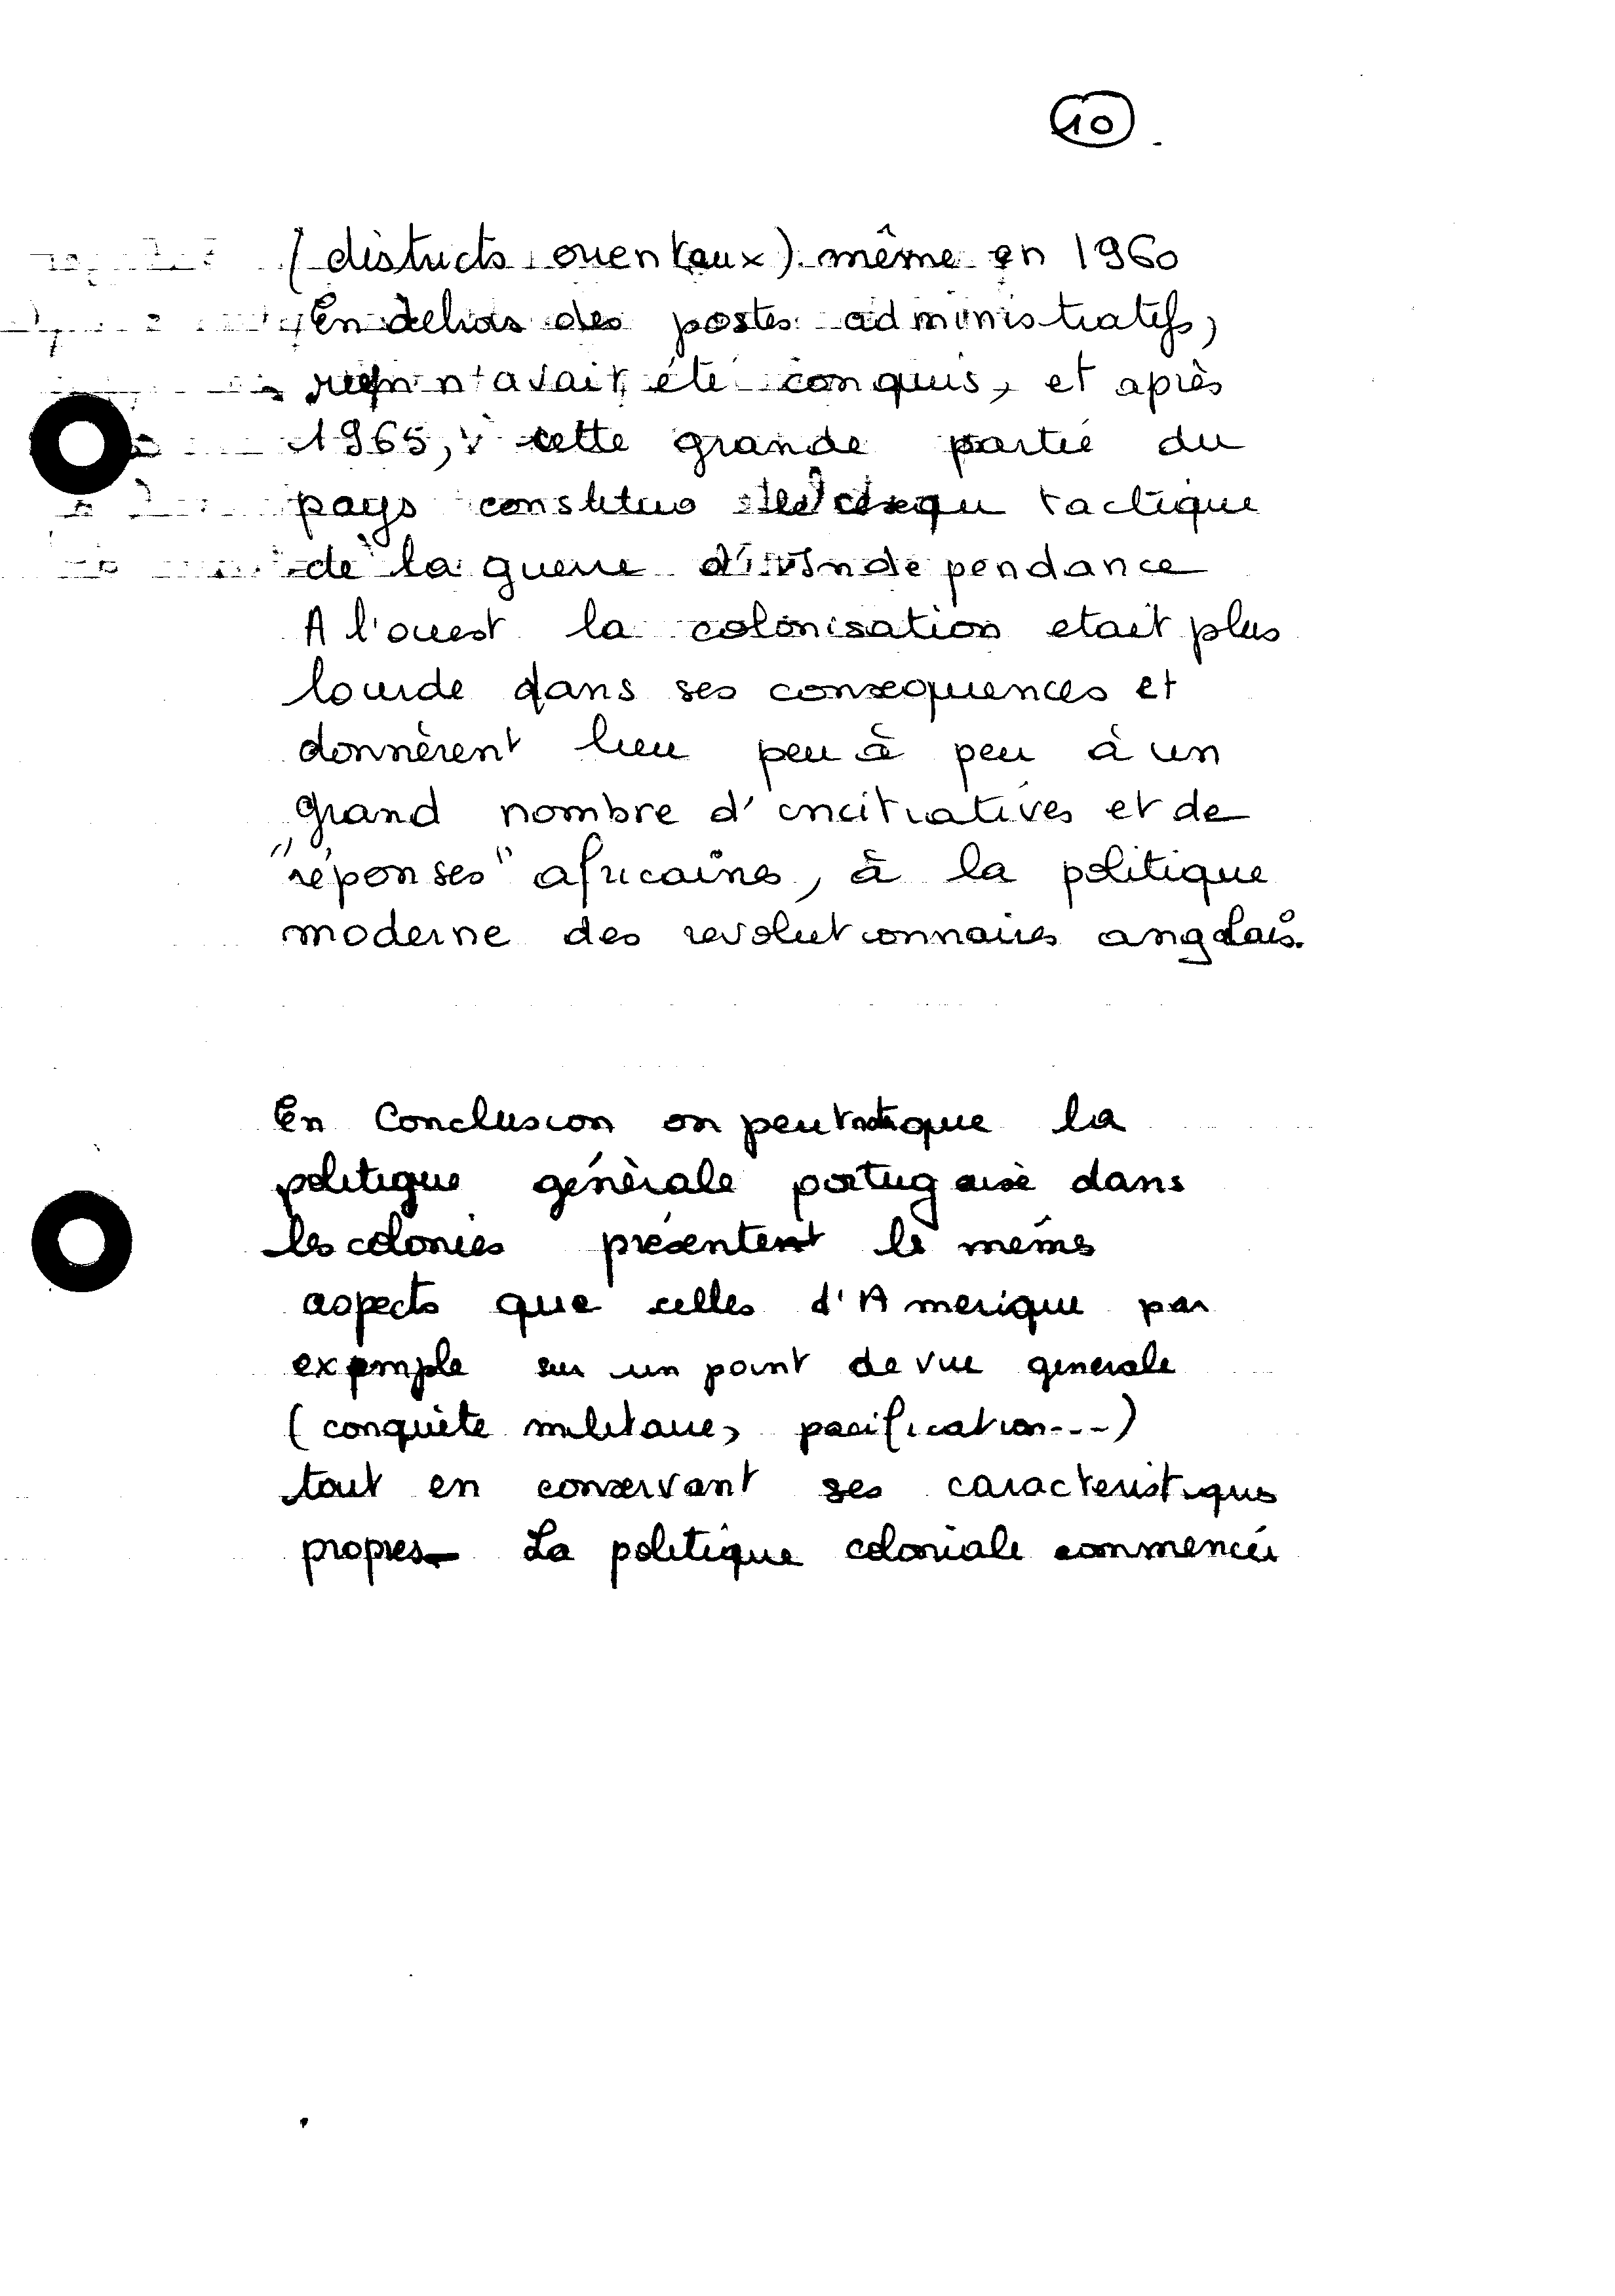 10
(districts orientaux) même en 1960
En dehors des postes administratifs,
rien n'avait été conquis, et après
1965, cette grande partie du
pays constitua tactique
de la guerre d'independance
A l'ouest la colonisation etait plus
lourde dans ses consequences et
donnèrent lieu peu à peu à un
grand nombre d'incitiatives et de
"réponses" africaines, à la politique
moderne des revolutionnaires angolais.
En Conclusion on peut que la
politique générale portugaise dans
les colonies présentent les mêmes
aspects que celles d'Amerique par
exemple sur un point de vue generale
(conquête militaire, pacification---)
tout en conservant ses caracteristiques
propres- La politique coloniale commencée